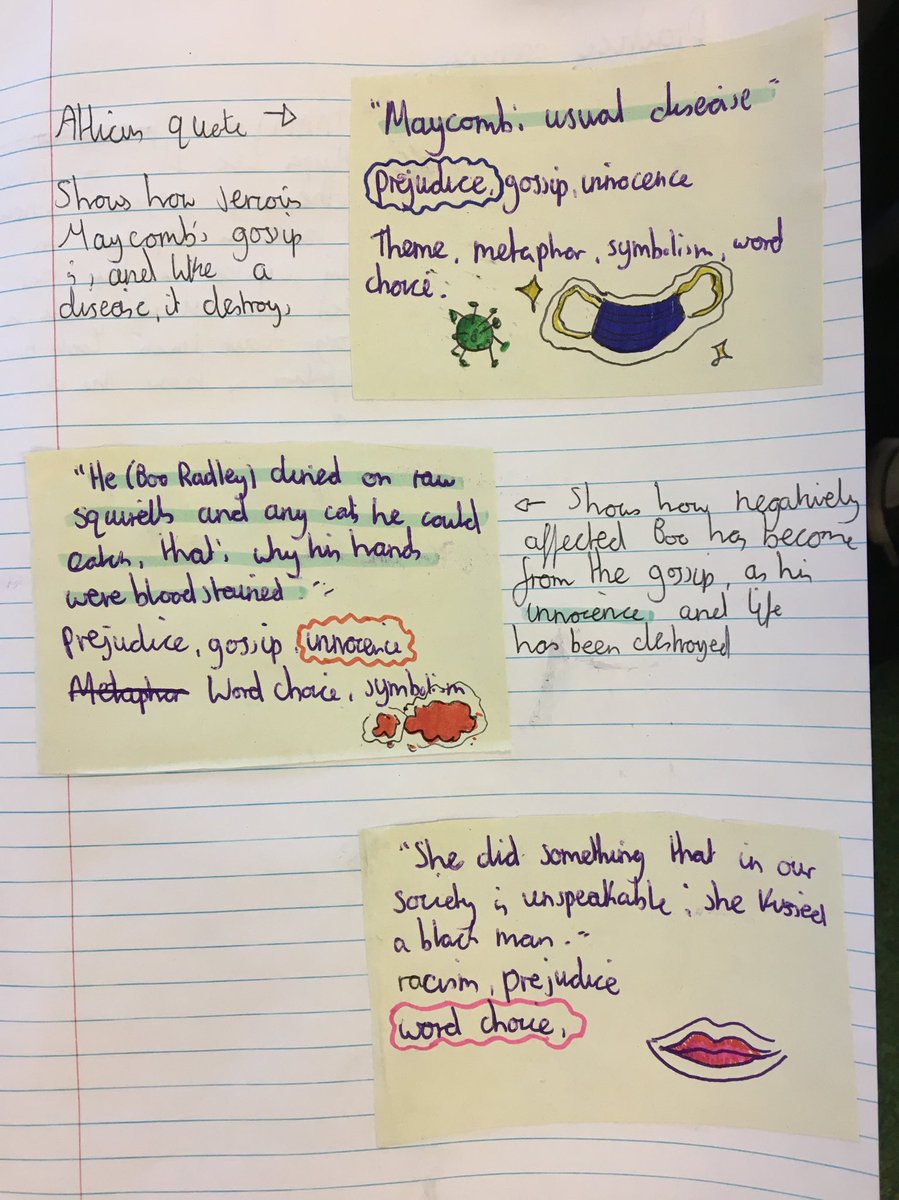 Atticus quote →
Shows how serious
Maycomb's gossip
is, and like a
disease, it destroys
"Maycomb's usual disease"
prejudice, gossip, innocence
Theme, metaphor, symbolism, word
choice.
"He (Boo Radley) dined on raw
squirells and any cats he could
catch, that's why his hands
were bloodstained."
Prejudice, gossip, innocence
Metaphor Word choice, symbolism
← Shows how negatively
affected Boo has become
from the gossip, as his
innocence and life
has been destroyed
"She did something that in our
society is unspeakable; she kissed
a black man."
racism, prejudice
word choice,